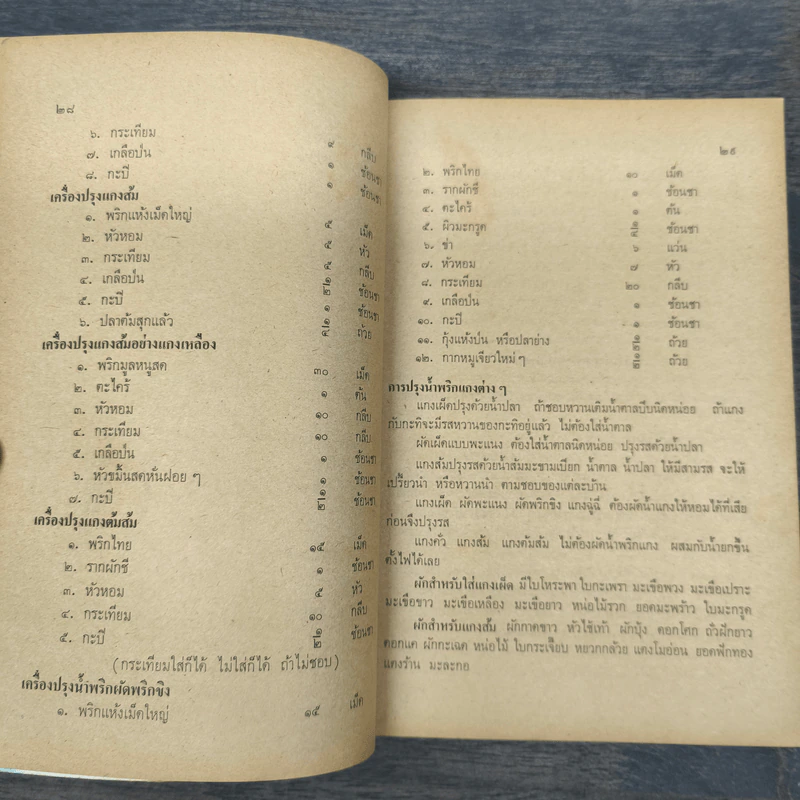 ๒๘
๖. กระเทียม ๙ กลีบ
๗. เกลือป่น ๑ ช้อนชา
๘. กะปิ ๑ ช้อนชา
เครื่องปรุงแกงส้ม
๑. พริกแห้งเม็ดใหญ่ ๕ เม็ด
๒. หัวหอม ๕ หัว
๓. กระเทียม ๕ กลีบ
๔. เกลือป่น ๑/๒ ช้อนชา
๕. กะปิ ๑ ช้อนชา
๖. ปลาต้มสุกแล้ว ๑/๒ ถ้วย
เครื่องปรุงแกงส้มอย่างแกงเหลือง
๑. พริกมูลหนูสด ๓๐ เม็ด
๒. ตะไคร้ ๑ ต้น
๓. หัวหอม ๑๐ กลีบ
๔. กระเทียม ๑๐ กลีบ
๕. เกลือป่น ๑ ช้อนชา
๖. หัวขมิ้นสดหั่นฝอย ๆ ๑ ช้อนชา
๗. กะปิ ๑/๒ ช้อนชา
เครื่องปรุงแกงต้มส้ม
๑. พริกไทย ๑๕ เม็ด
๒. รากผักชี ๑ ช้อนชา
๓. หัวหอม ๕ หัว
๔. กระเทียม ๑๐ กลีบ
๕. กะปิ ๑/๒ ช้อนชา
(กระเทียมใส่ก็ได้ ไม่ใส่ก็ได้ ถ้าไม่ชอบ)
เครื่องปรุงน้ำพริกผัดพริกขิง
๑. พริกแห้งเม็ดใหญ่ ๑๕ เม็ด
๒๙
๒. พริกไทย ๑๐ เม็ด
๓. รากผักชี ๑ ช้อนชา
๔. ตะไคร้ ๑ ต้น
๕. ผิวมะกรูด ๑/๒ ช้อนชา
๖. ข่า ๖ แว่น
๗. หัวหอม ๗ หัว
๘. กระเทียม ๒๐ กลีบ
๙. เกลือป่น ๑ ช้อนชา
๑๐. กะปิ ๑ ช้อนชา
๑๑. กุ้งแห้งป่น หรือปลาย่าง ๑/๒ ถ้วย
๑๒. กากหมูเจียวใหม่ ๆ ๑/๒ ถ้วย
การปรุงน้ำพริกแกงต่าง ๆ
แกงเผ็ดปรุงด้วยน้ำปลา ถ้าชอบหวานเติมน้ำตาลปีบนิดหน่อย ถ้าแกง
กับกะทิจะมีรสหวานของกะทิอยู่แล้ว ไม่ต้องใส่น้ำตาล
ผัดเผ็ดแบบพะแนง ต้องใส่น้ำตาลนิดหน่อย ปรุงรสด้วยน้ำปลา
แกงส้มปรุงรสด้วยน้ำส้มมะขามเปียก น้ำตาล น้ำปลา ให้มีสามรส จะให้
เปรี้ยวนำ หรือหวานนำ ตามชอบของแต่ละบ้าน
แกงเผ็ด ผัดพะแนง ผัดพริกขิง แกงฉู่ฉี่ ต้องผัดน้ำแกงให้หอมได้ที่เสีย
ก่อนจึงปรุงรส
แกงคั่ว แกงส้ม แกงต้มส้ม ไม่ต้องผัดน้ำพริกแกง ผสมกับน้ำยกขึ้น
ตั้งไฟได้เลย
ผักสำหรับใส่แกงเผ็ด มีใบโหระพา ใบกะเพรา มะเขือพวง มะเขือเปราะ
มะเขือขาว มะเขือเหลือง มะเขือยาว หน่อไม้รวก ยอดมะพร้าว ใบมะกรูด
ผักสำหรับแกงส้ม ผักกาดขาว หัวไช้เท้า ผักบุ้ง ดอกโศก ถั่วฝักยาว
ดอกแค ผักกะเฉด หน่อไม้ ใบกระเจี๊ยบ หยวกกล้วย แตงโมอ่อน ยอดฟักทอง
แตงร้าน มะละกอ